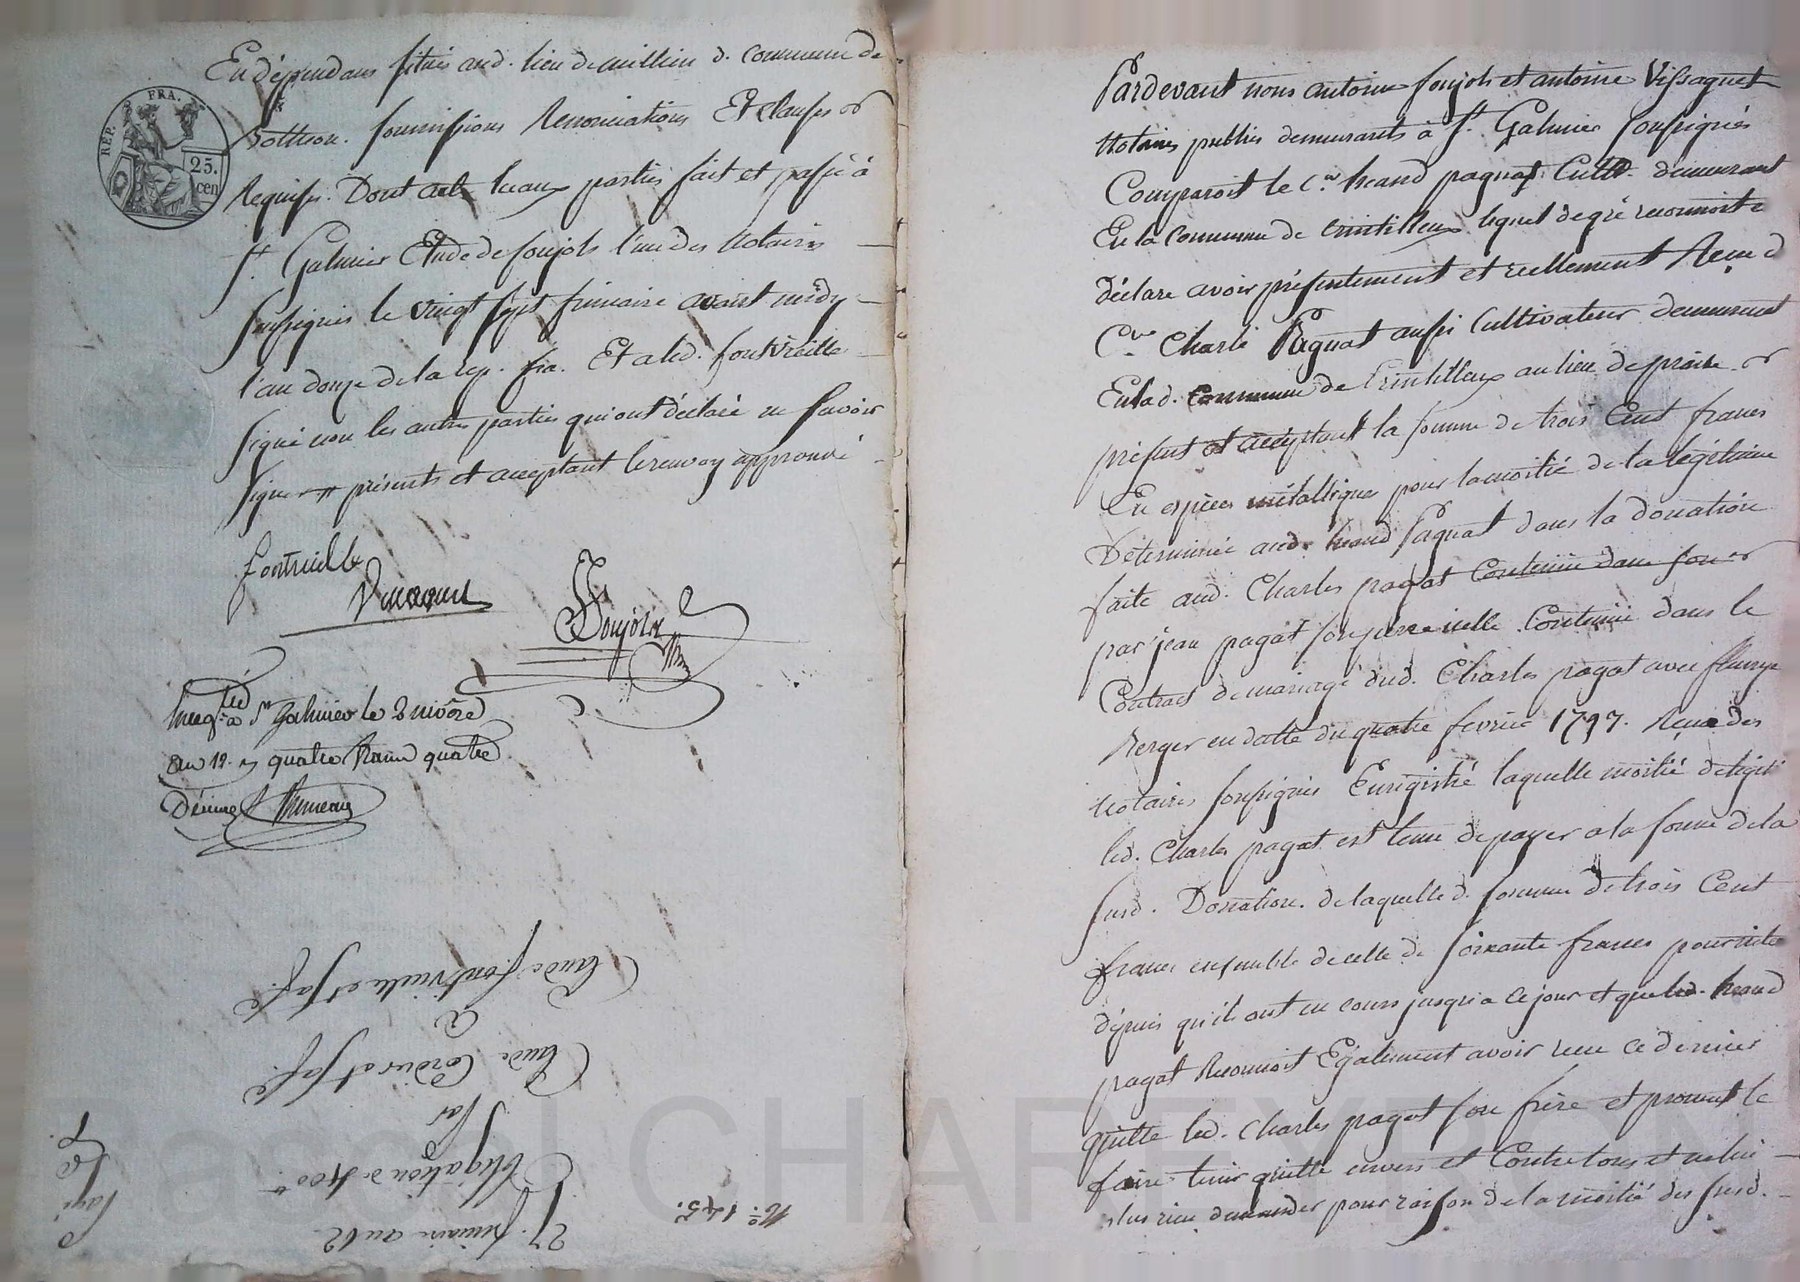 En dépendans situés aud. lieu de commune de
REP. FRA.
25. cen
soumissions Renonciations Et clauses
Requises. Dont acte parties fait et passé à
St. Galmier Etude de soujols l'un des Notaires
soussignés le vingt sept frimaire avant midy
l'an douze de la rép. fra. Et a led. fontvieille
signé non les autres parties qui ont déclaré ne savoir
signer présents et acceptant le renvoy approuvé
fontvieille
Soujols
Enreg.té à St Galmier le 2 nivôse
an 12. quatre francs quatre
Décimes
Claude fontvieille et sa f.e
à
Claude Cordier et sa f.e
Par
Obligation de 400
27. frimaire an 12
N.o 145.
Pardevant nous antoine soujols et antoine Vissaguet
Notaires publics demeurants à St. Galmier soussignés
Comparoit le c.en pagnat Cult. demeurant
En la commune de lequel de gré reconnoit &
déclare avoir présentement et réellement Reçu d
C.en Charle Pagnat aussi Cultivateur demeurant
En lad. commune de au lieu de
présent et acceptant la somme de trois Cent francs
En espèces métalliques pour la moitié de la légitime
Déterminée aud. Pagnat dans la donation
faite aud. Charles pagat Contenüe dans son
par jean pagat son père icelle Contenüe dans le
Contrat de mariage dud. Charles pagat avec fleurye
Berger en datte du quatre fevrier 1797. Reçu des
Notaires soussignés Enregistré laquelle moitié de légit.
led. Charles pagat est tenu de payer a la forme de la
susd. Donation. de laquelle d. somme de trois Cent
francs ensemble de celle de soixante francs pour
depuis qu'ils ont eu cours jusqu'à ce jour et que led.
pagat Reconnoit Egalement avoir reçu ce dernier
quitte led. Charles pagat son frère et promet le
faire tenir quitte envers et Contre tous et ne lui
plus rien demander pour raison de la moitié des susd.
Pascal CHAREYRON